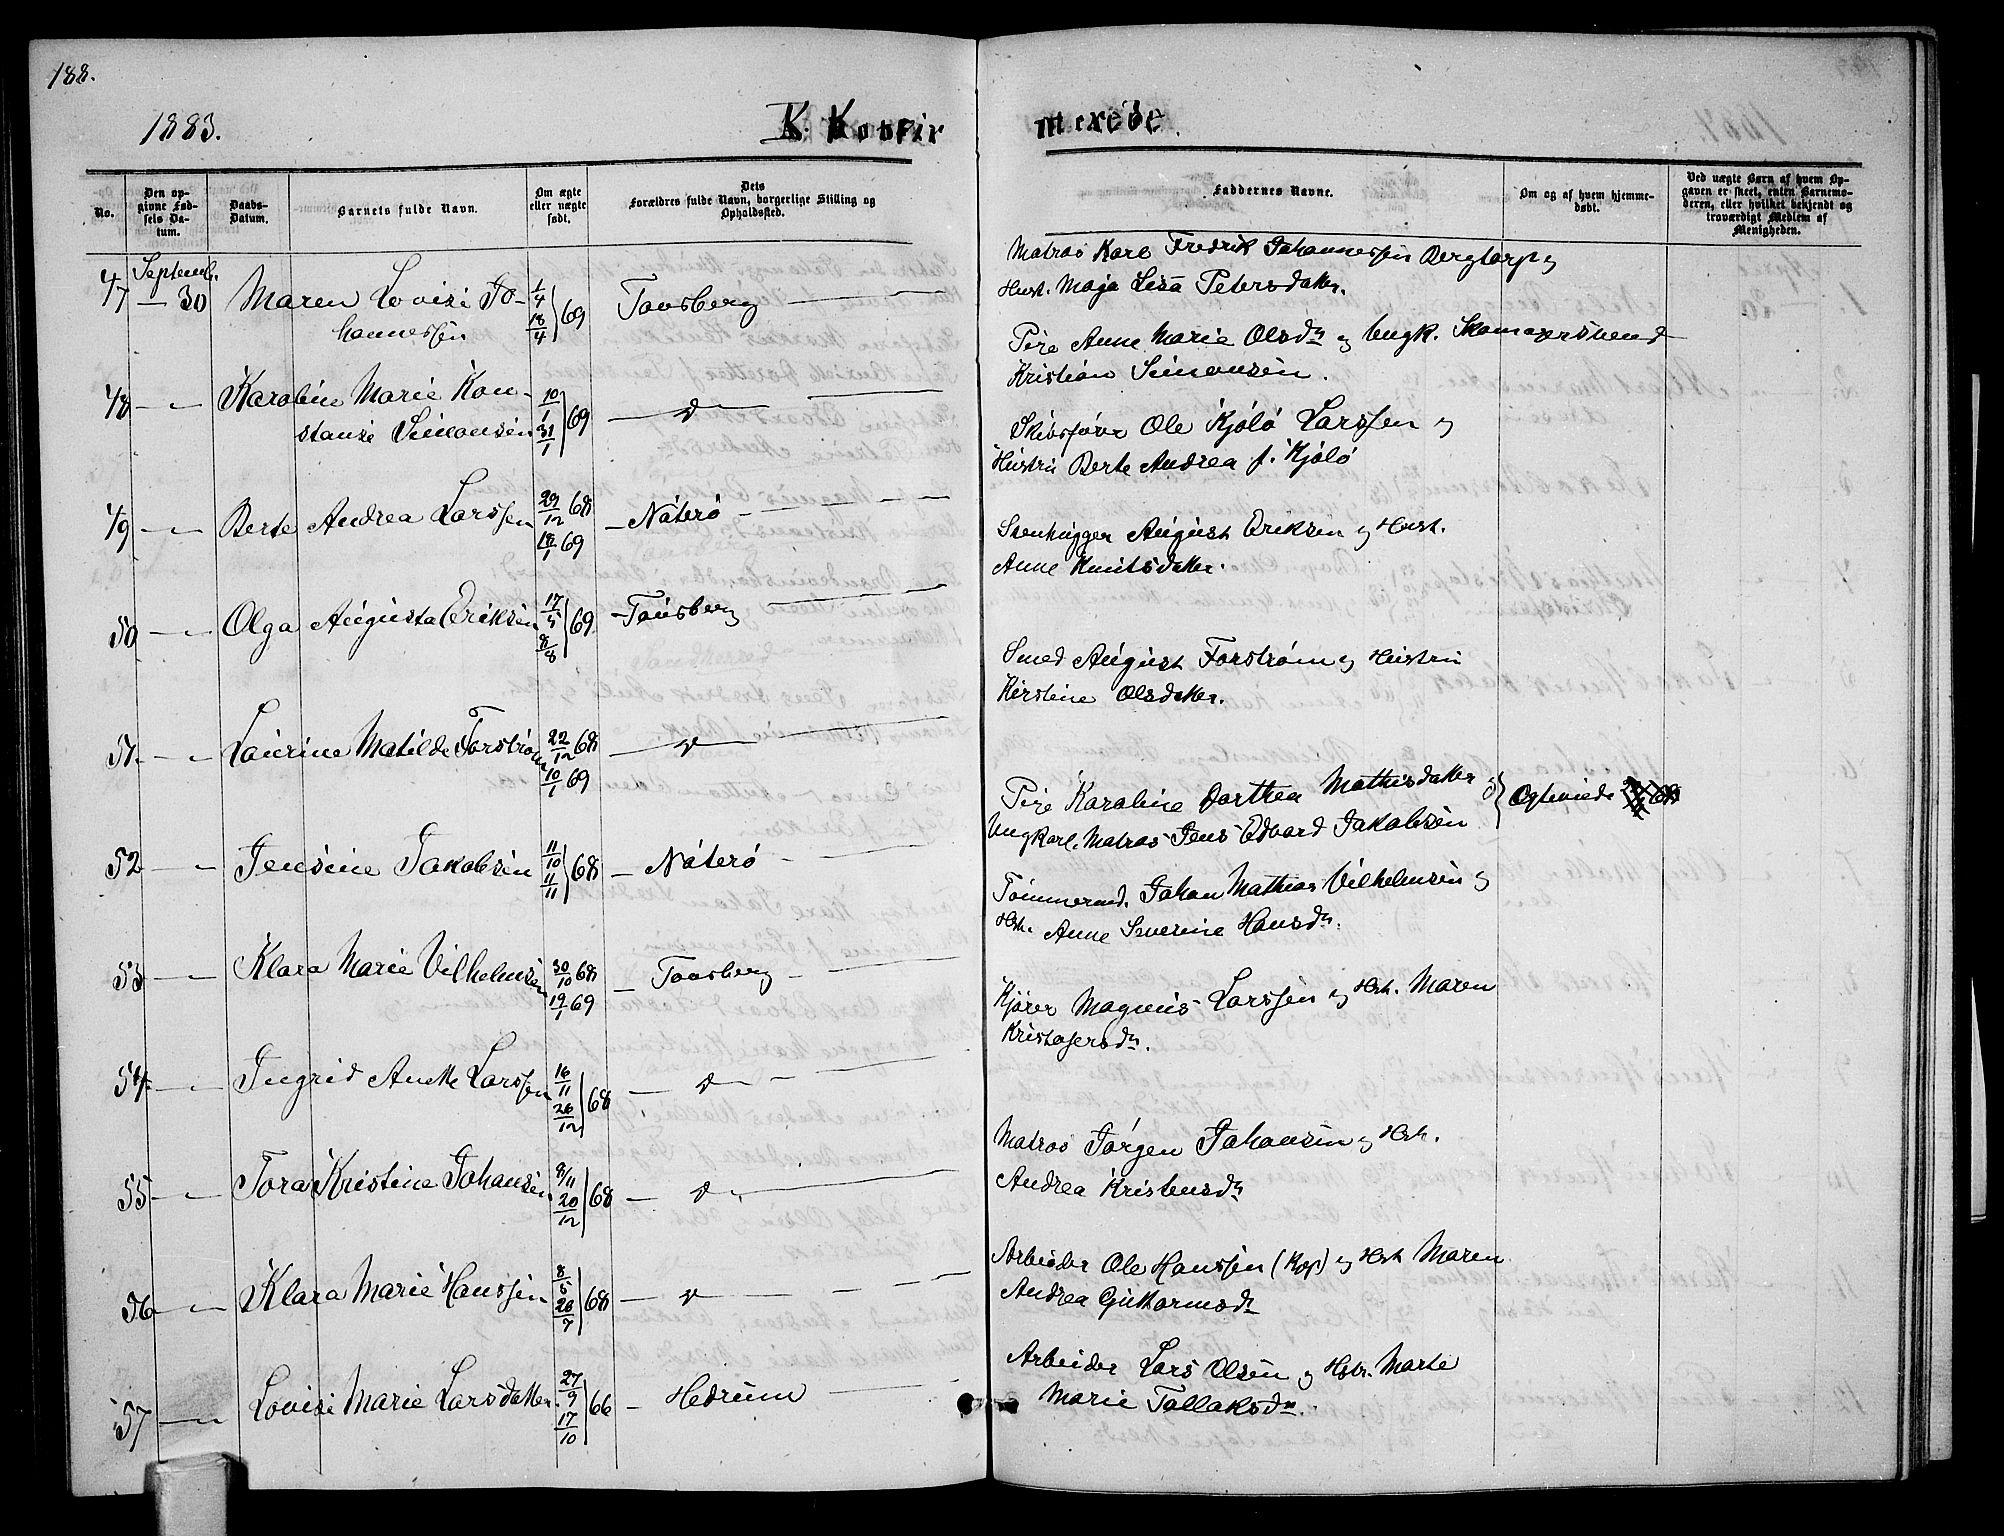 188.
1883.
K. Konfir
merede.
No.
Den op-
givne Fød-
sels Da-
tum.
Daabs-
Datum.
Barnets fulde Navn.
Om ægte
eller uægte
født.
Dets
Forældres fulde Navn, borgerlige Stilling og
Opholdssted.
Faddernes Navne.
Om og af hvem hjemme-
døbt.
Ved uægte Børn af hvem Op-
gaven er skeet, enten Barnemo-
deren, eller hvilket bekjendt og
troværdigt Medlem af
Menigheden.
Septemb.
47 — 30 Maren Lovise Jo-
hannessen
1/4 18/4 69 Tønsberg
Matros Karl Fredrik Johannessen Bergtorp og
Hust. Maja Lisa Petersdatter.
48 — Karoline Marie Kon-
stanse Simonsen
10/1 31/1 69
Pige Anne Marie Olsdn og Ungk. Skomagersvend
Kristian Simonsen.
49 — Berte Andrea Larssen 29/12 68 18/1 69 — Nøterø
Skibsfører Ole Kjølø Larssen og
Hustru Berte Andrea f. Kjølø
50 — Olga Augusta Eriksen 17/5 8/8 69 — Tønsberg
Stenhugger August Eriksen og Hust.
Anne Knutsdatter.
51. — Laurine Matilde Forstrøm 22/12 68 10/1 69
Smed August Forstrøm og Hustru
Kirstine Olsdatter.
52 — Jensine Jakobsen 11/10 11/11 68 — Nøterø
Pige Karoline Dorthea Mathisdatter
Ungkarl. Matros Jens Edvard Jakobsen
Egteviede
53 — Klara Marie Vilhelmsen 30/10 68 19/1 69 — Tønsberg
Tømmermd. Johan Mathias Vilhelmsen og
Hst. Anne Severine Hansdn.
54 — Ingrid Anette Larssen 16/11 26/12 68
Kjører Magnus Larssen og Hst. Maren
Kristofersdn.
55 — Tora Kristine Johansen 8/11 20/12 68
Matros Jørgen Johansen og Hst.
Andrea Kristensdn
56 — Klara Marie Hanssen 8/5 26/7 68
Arbeider Ole Hanssen (Kop) og Hst Maren
Andrea Guttormsdn
57 — Lovise Marie Larsdatter. 27/9 17/10 66 — Hedrum
Arbeider Lars Olsen og Hstr. Marte
Marie Tollaksdn.